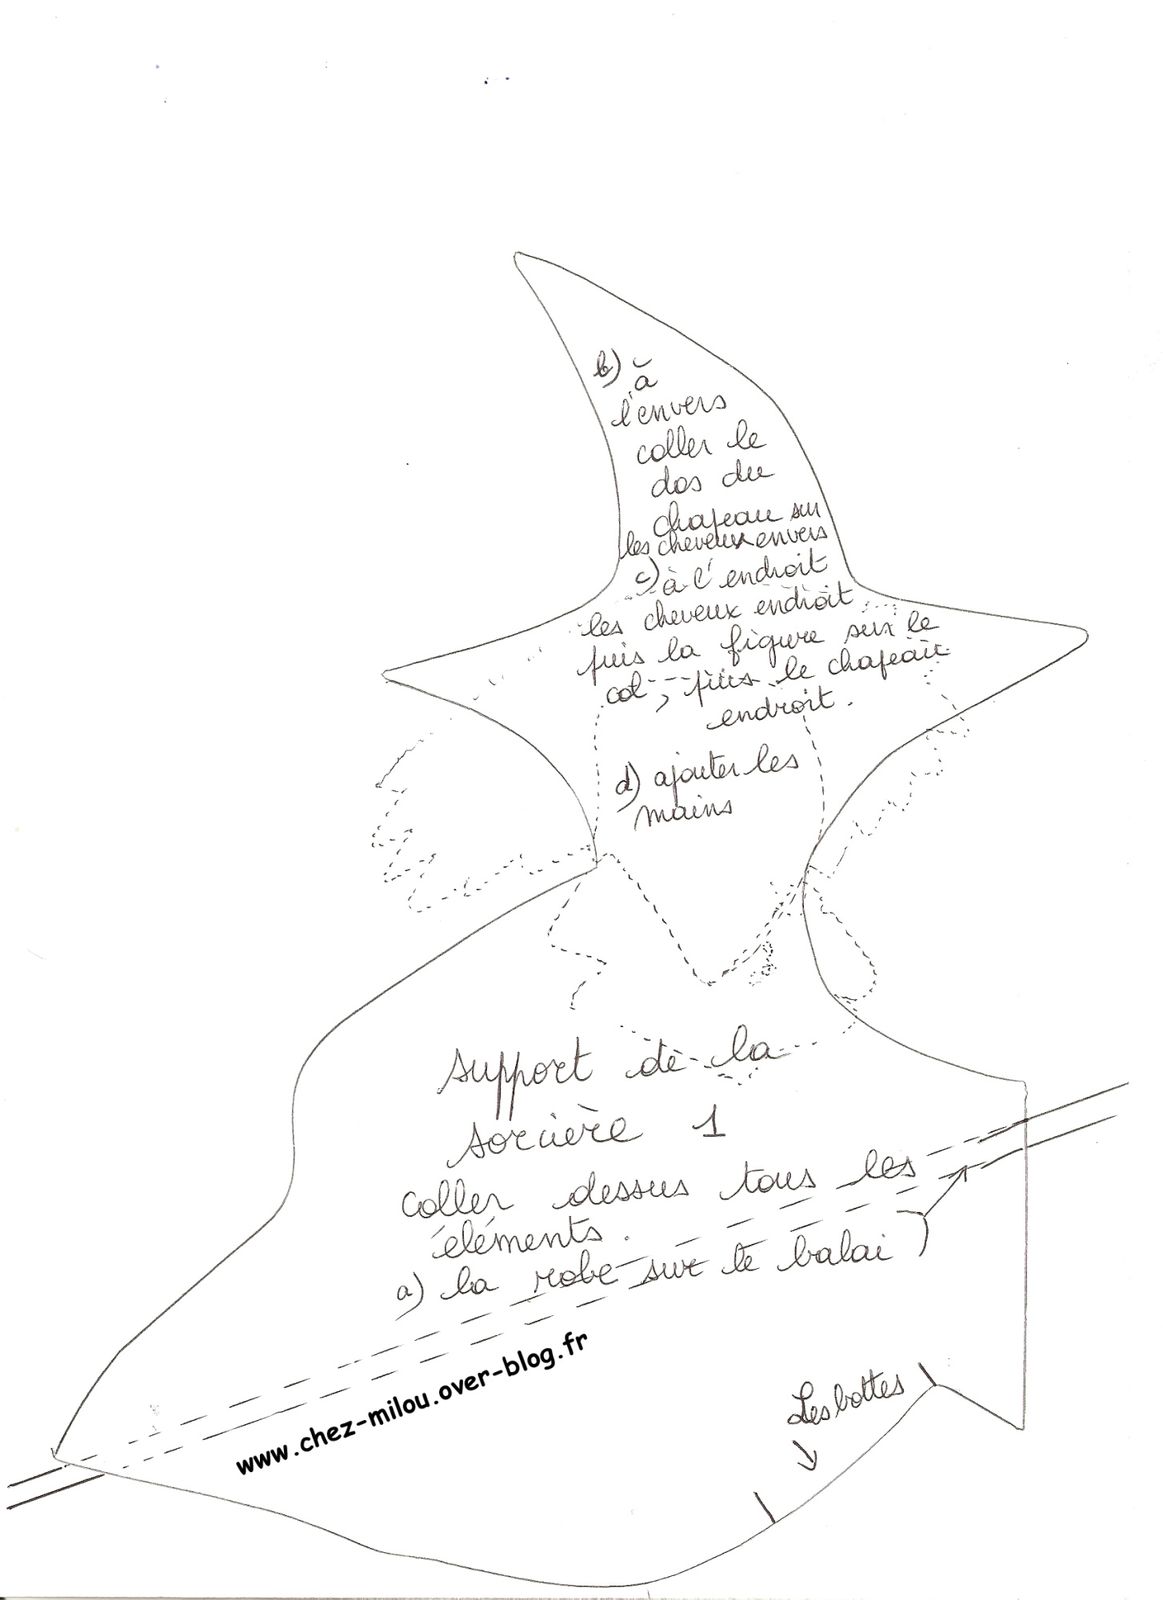 b) à
l'envers
coller le
dos du
chapeau sur
les cheveux envers
c) à l'endroit
les cheveux endroit
puis la figure sur le
col, puis le chapeau
endroit.
d) ajouter les
mains
support de la
sorcière 1
coller dessus tous les
éléments.
a) la robe sur le balai
www.chez-milou.over-blog.fr
Les bottes